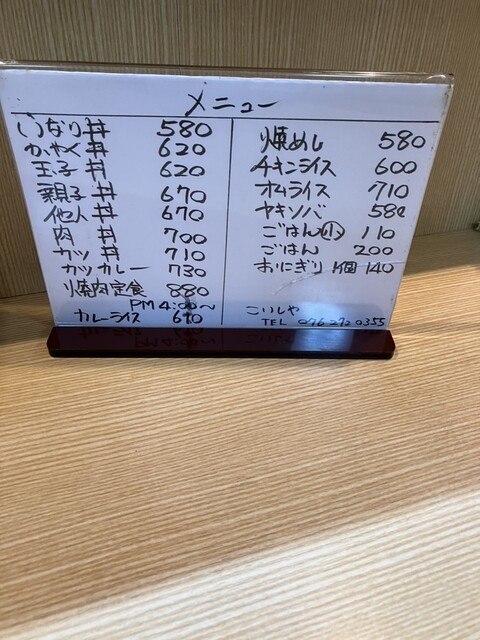 メニュー
いなり丼 580
かやく丼 620
玉子丼 620
親子丼 670
他人丼 670
肉丼 700
カツ丼 710
カツカレー 730
焼肉定食 880
PM 4:00〜
カレーライス
焼めし 580
チキンライス 600
オムライス 710
ヤキソバ 580
ごはん小 110
ごはん 200
おにぎり 1個 140
こりしや
TEL 076 272 0355